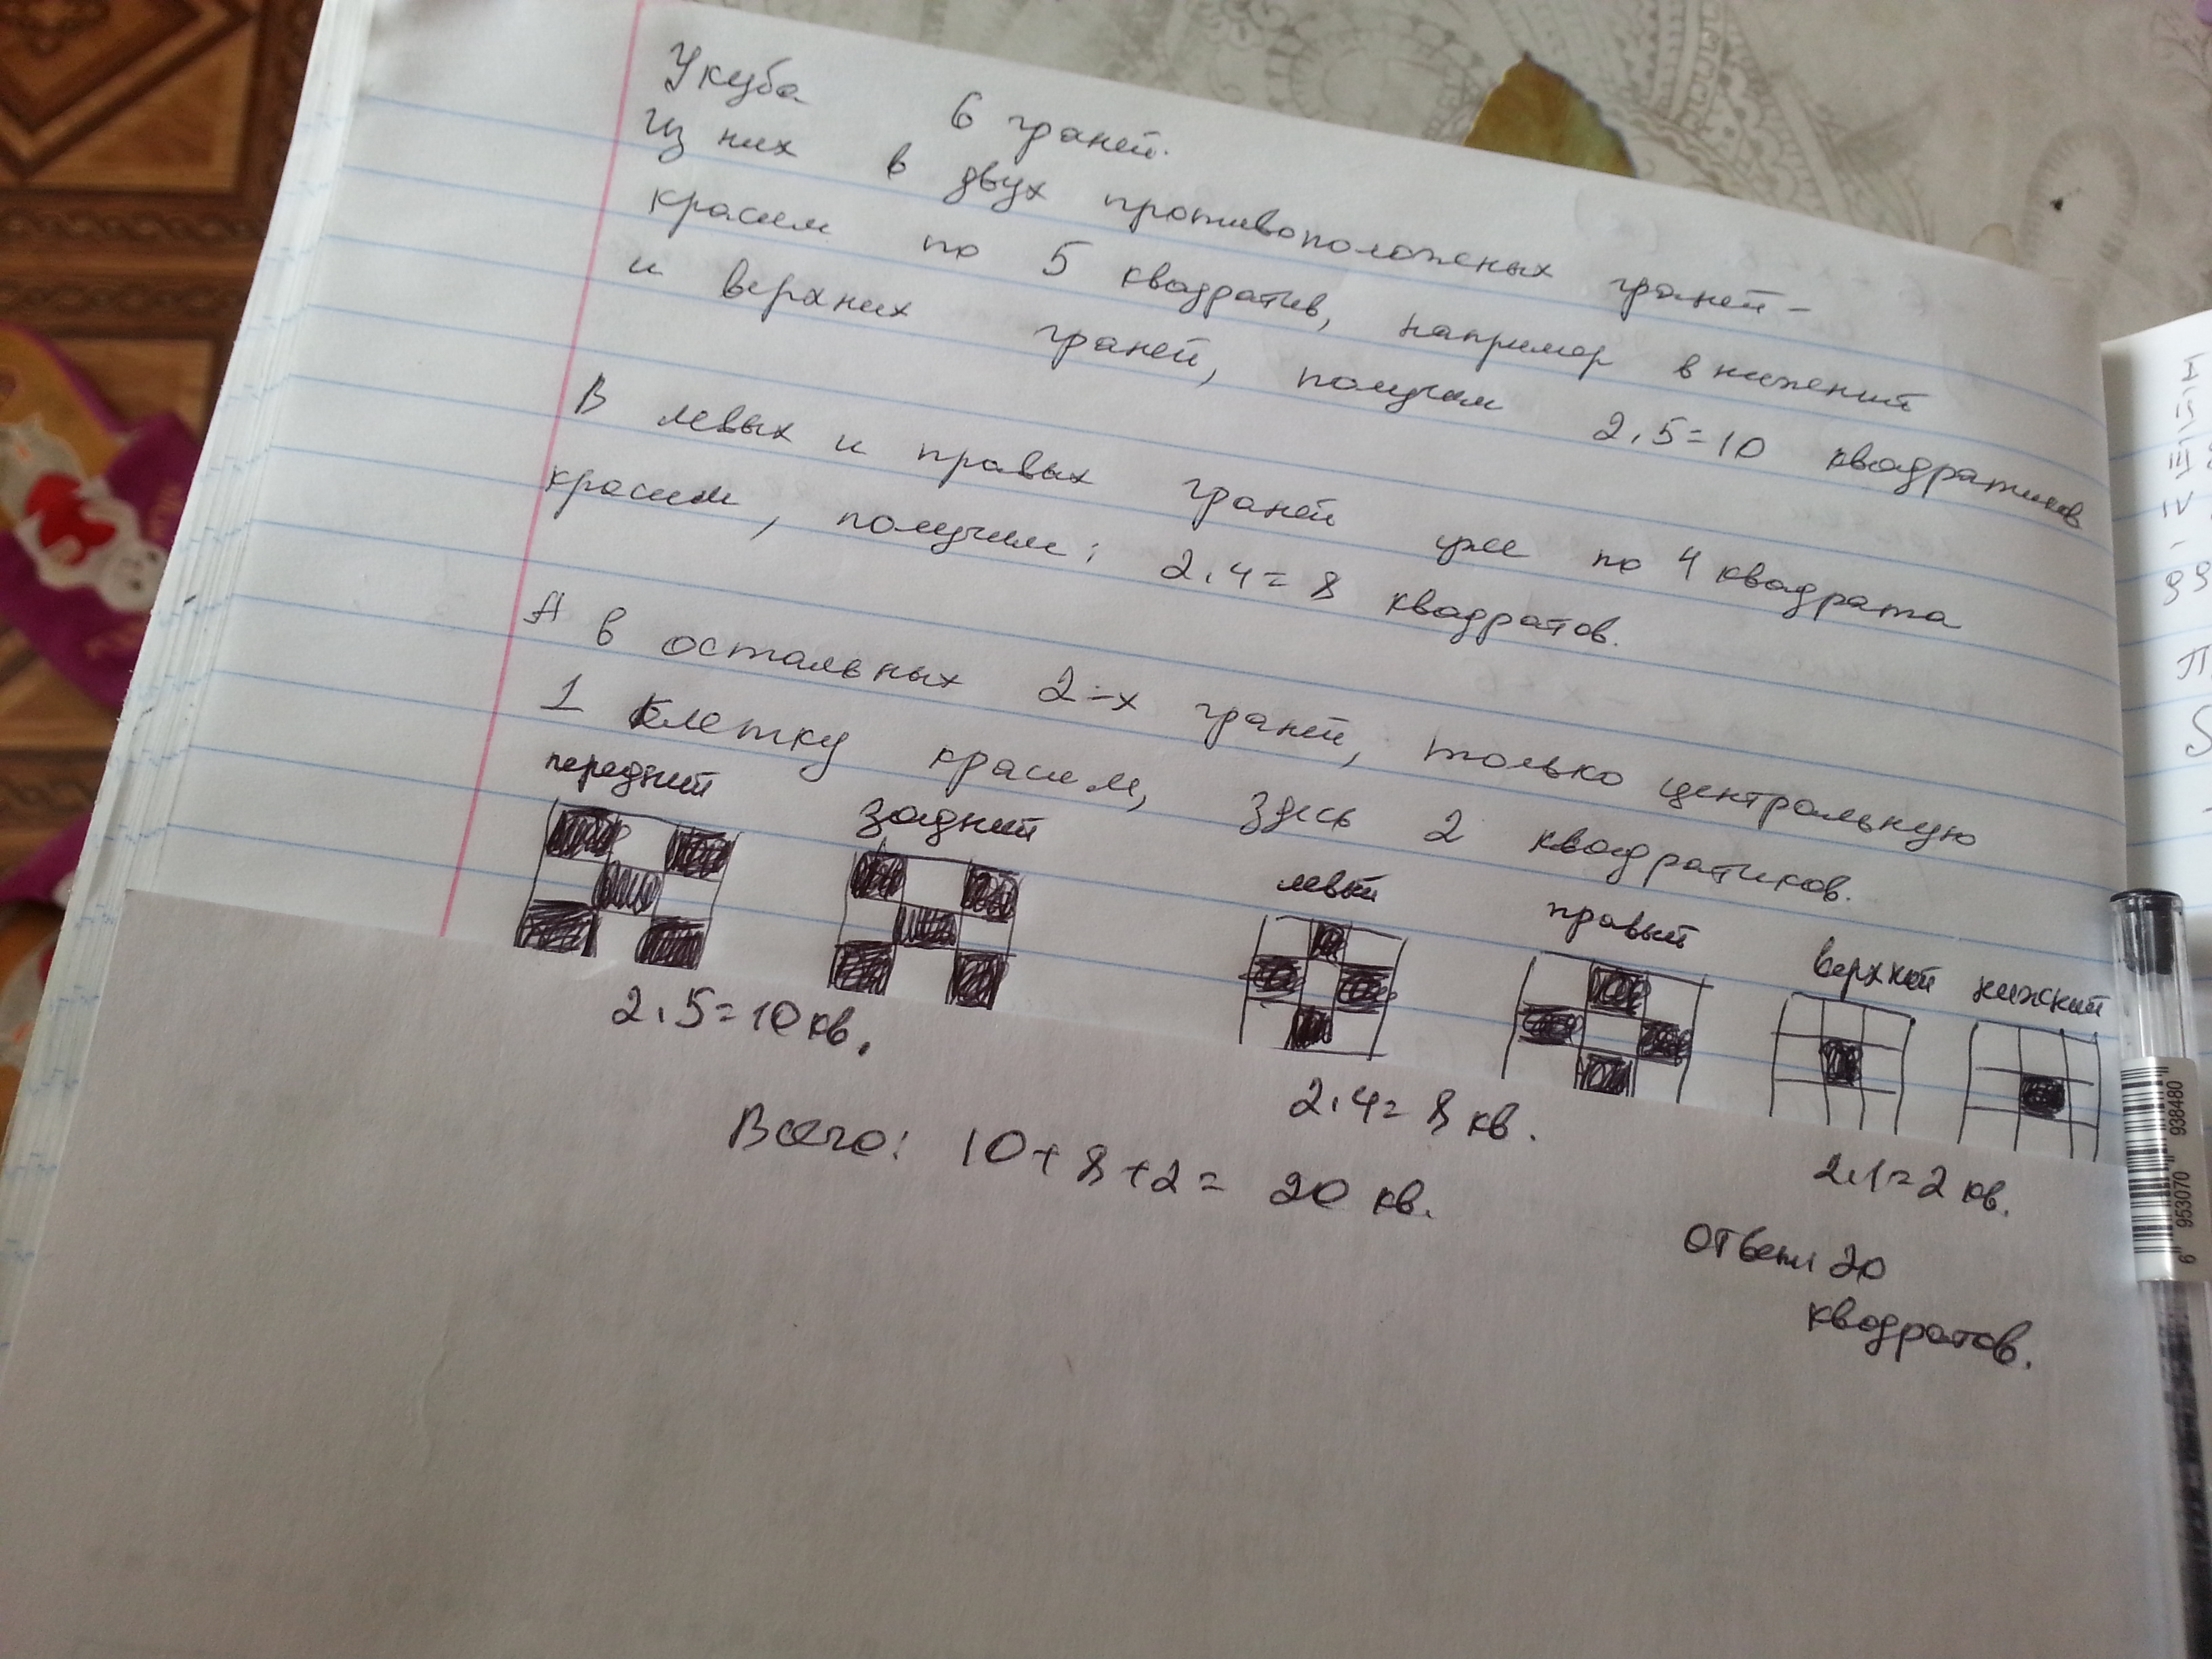 У куба 6 граней.
Из них в двух противоположеных граней-
красим по 5 квадратив, например в нижений
и верхних граней, получим 2.5=10 квадратиков
В левых и правых граней уже по 4 квадрата
красим, получим: 2.4=8 квадратов.
А в остальных 2-х граней, только центральную
1 клетку красим, здесь 2 квадратиков.
передний задний левый правый верхний нижний
2.5=10 кв. 2.4=8 кв. 2.1=2 кв.
Всего: 10+8+2=20 кв.
Ответ: 20
квадратов.
I
II
III
IV
-
6 953070 938480